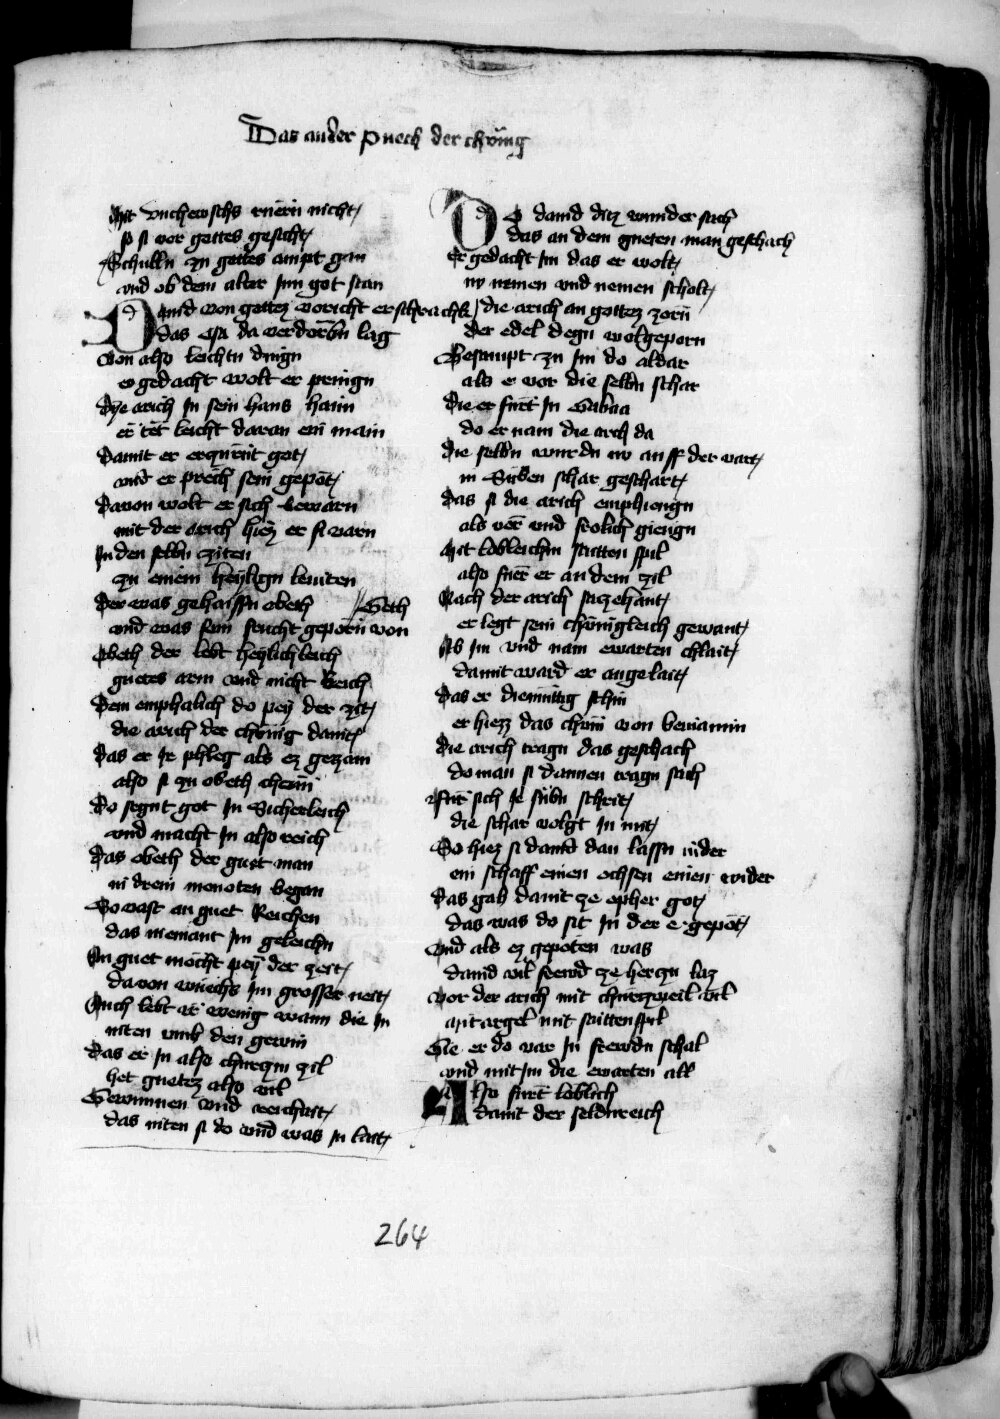 Das ander puech der chünig
Mit vnchewschs ruern nicht
so si vor gottes gesicht
Schulln zu gottes ampt gan
vnd ob dem alter Inn got stan
Dauid von gottez voricht erschrachkt
das Osa da verdorbn lag
Von also leichtn dingn
er gedacht wolt er pringn
Dye arich In sein haus haim
er tet leicht daran ein main
Damit er erczürnt got
vnd er prech sein gepot
Dauon wolt er sich bewarn
mit der arich hiez er si varn
In den selbn ziten
zu einem heylign leuiten
Der was gehaissn obeth
vnd was sein frucht geporn von Geth
Obeth der lebt heylichleich
guetes arm vnd nicht Reich
Dem emphalich do pey der zit
die arich der chünig dauit
Das er Ir phleg als ez gezam
also si zu obeth cham
Do segnt got In Sicherleich
vnd macht In also reich
Das obeth der guet man
in drein moneten began
So vast an guet Reichen
das niemant Im geleichn
An guet mocht pey der zeit
dauon wuechs Im grosser neit
Auch lebt ir wenig wann die In
niten vmb den gewin
Das er In also churczm zil
het guetez also vil
Gewunnen vnd reichait
das niten si do vnd was In lait
Do dauid ditz wunder sach
das an dem gueten man geschach
Er gedacht Im das er wolt
nv nemen vnd nemen scholt
die arich an gottez zorn
der edel degn wolgeporn
Besampt zu Im do aldar
als e vor die selbn schar
Die er fuert In Gabaa
do er nam die arch da
Die selbn wurdn nv auff der vart
in Siben schar geschart
Das si die arich emphiengn
als ver vnd frolich giengn
Mit lobleichm saitten spil
also fuer er an dem zil
Nach der arich saczehant
er legt sein chünigleich gewant
Ab Im vnd nam ewarten chlait
damit ward er angelait
Das er diemütig schin
er hiezz das chün von beniamin
Die arich tragn das geschach
do man si dannen tragn sach
Fur sich Ie sibn schrit
die schar volgt In mit
So hiez si dauid dan lassn nider
ein schaff einen ochsen einen wider
Das gab dauit ze opher got
das was do sit In der e gepot
Vnd als ez gepoten was
dauid vil frewd ze herczn laz
Vor der arich mit churczweil vil
mit orgel mit saittenspil
Hie er do var In frewdn schal
vnd mit Im die ewarten all
Also fuert loblich
dauit der seldnreich
264